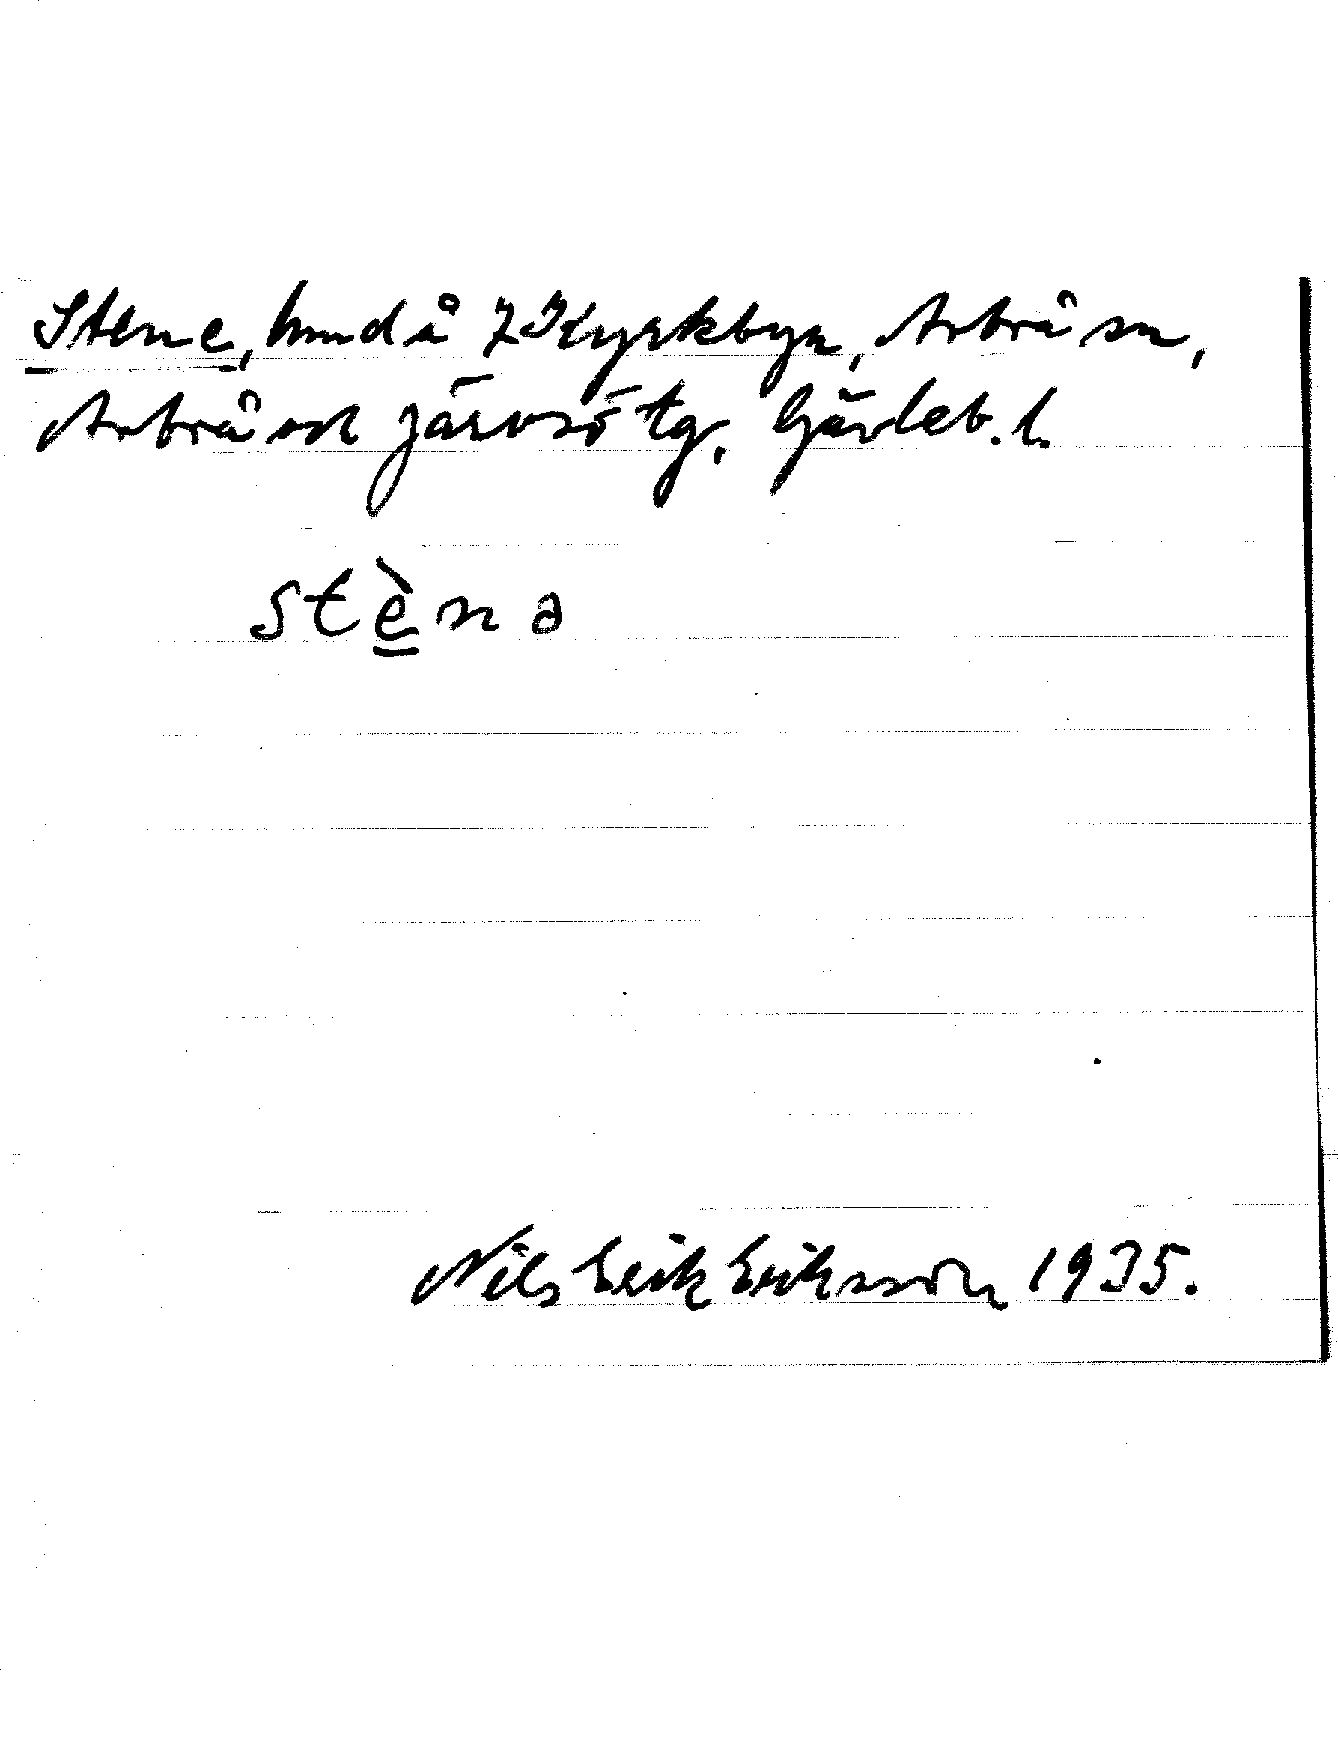 Stene, hmd å 7 Kyrkbyn, Arbrå sn,
Arbrå och Järvsö tg. Gävleb. l.
stènə
Nils Erik Eriksson 1935.